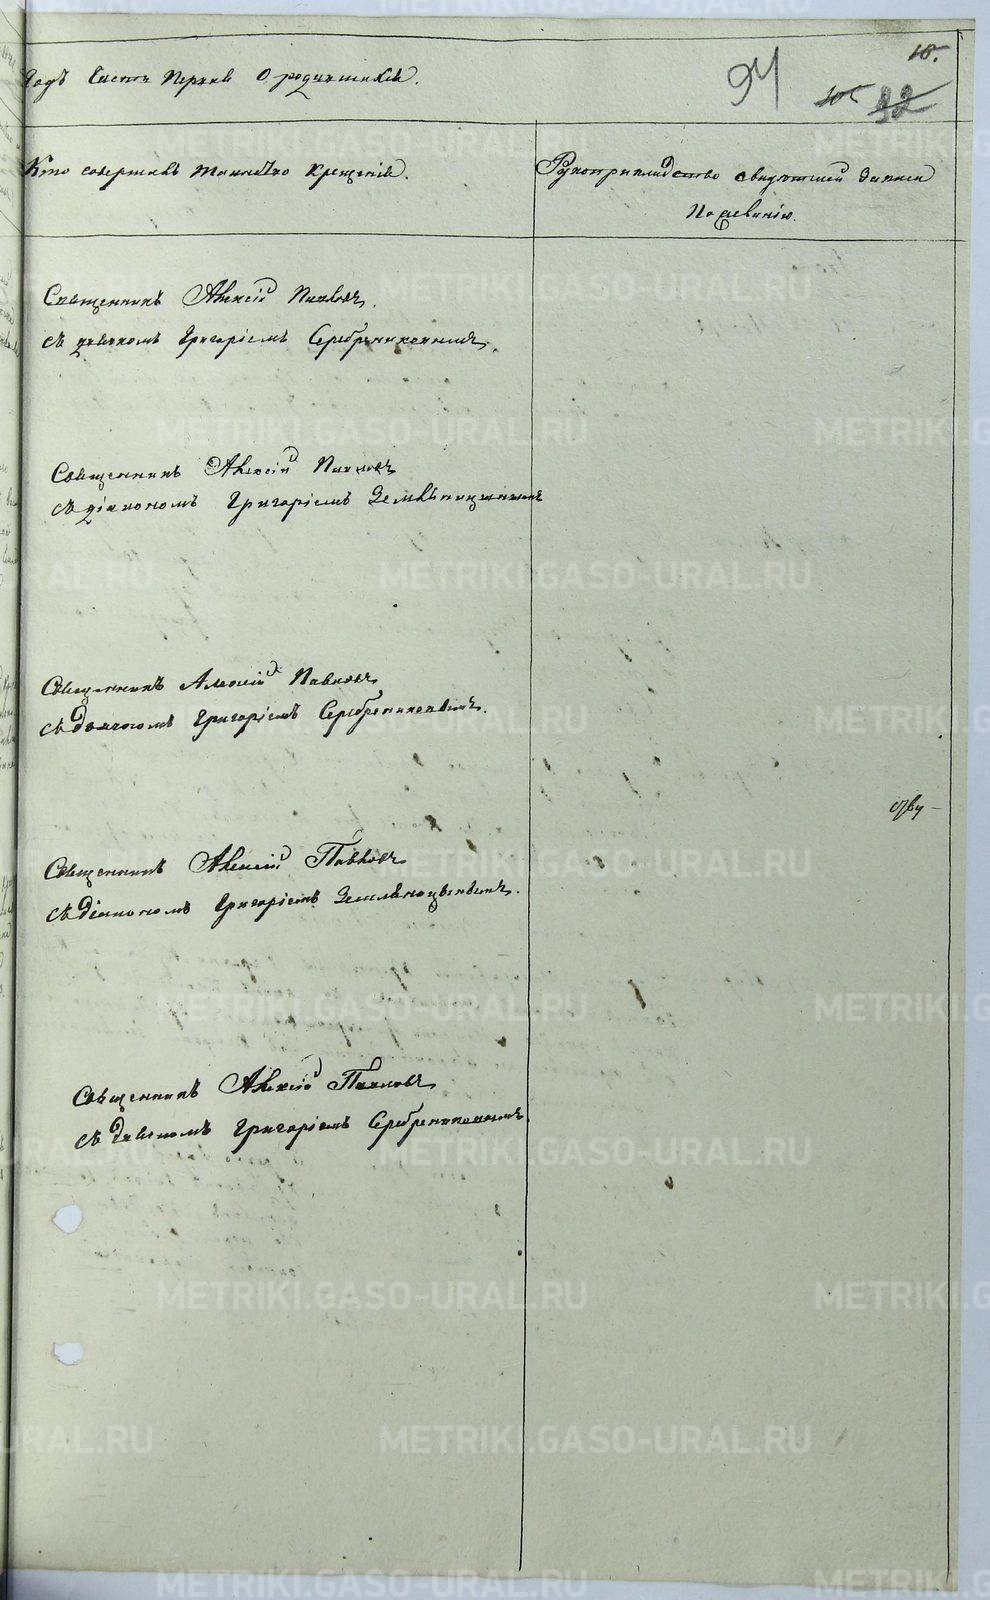 10.
94
105 32
Годъ Часть Первая О родившихся.
Кто совершалъ Таинство Крещенія.
Рукоприкладство свидѣтелей записи
По желанію.
Священникъ Алексій Павловъ
съ дьячкомъ Григоріемъ Серебрениковымъ.
Священникъ Алексій Павловъ
съ діакономъ Григоріемъ
Священникъ Алексій Павловъ
съ дьячкомъ Григоріемъ Серебрениковымъ.
Священникъ Алексій Павловъ
съ діакономъ Григоріемъ
Священникъ Алексій Павловъ
съ дьячкомъ Григоріемъ Серебрениковымъ.
METRIKI.GASO-URAL.RU